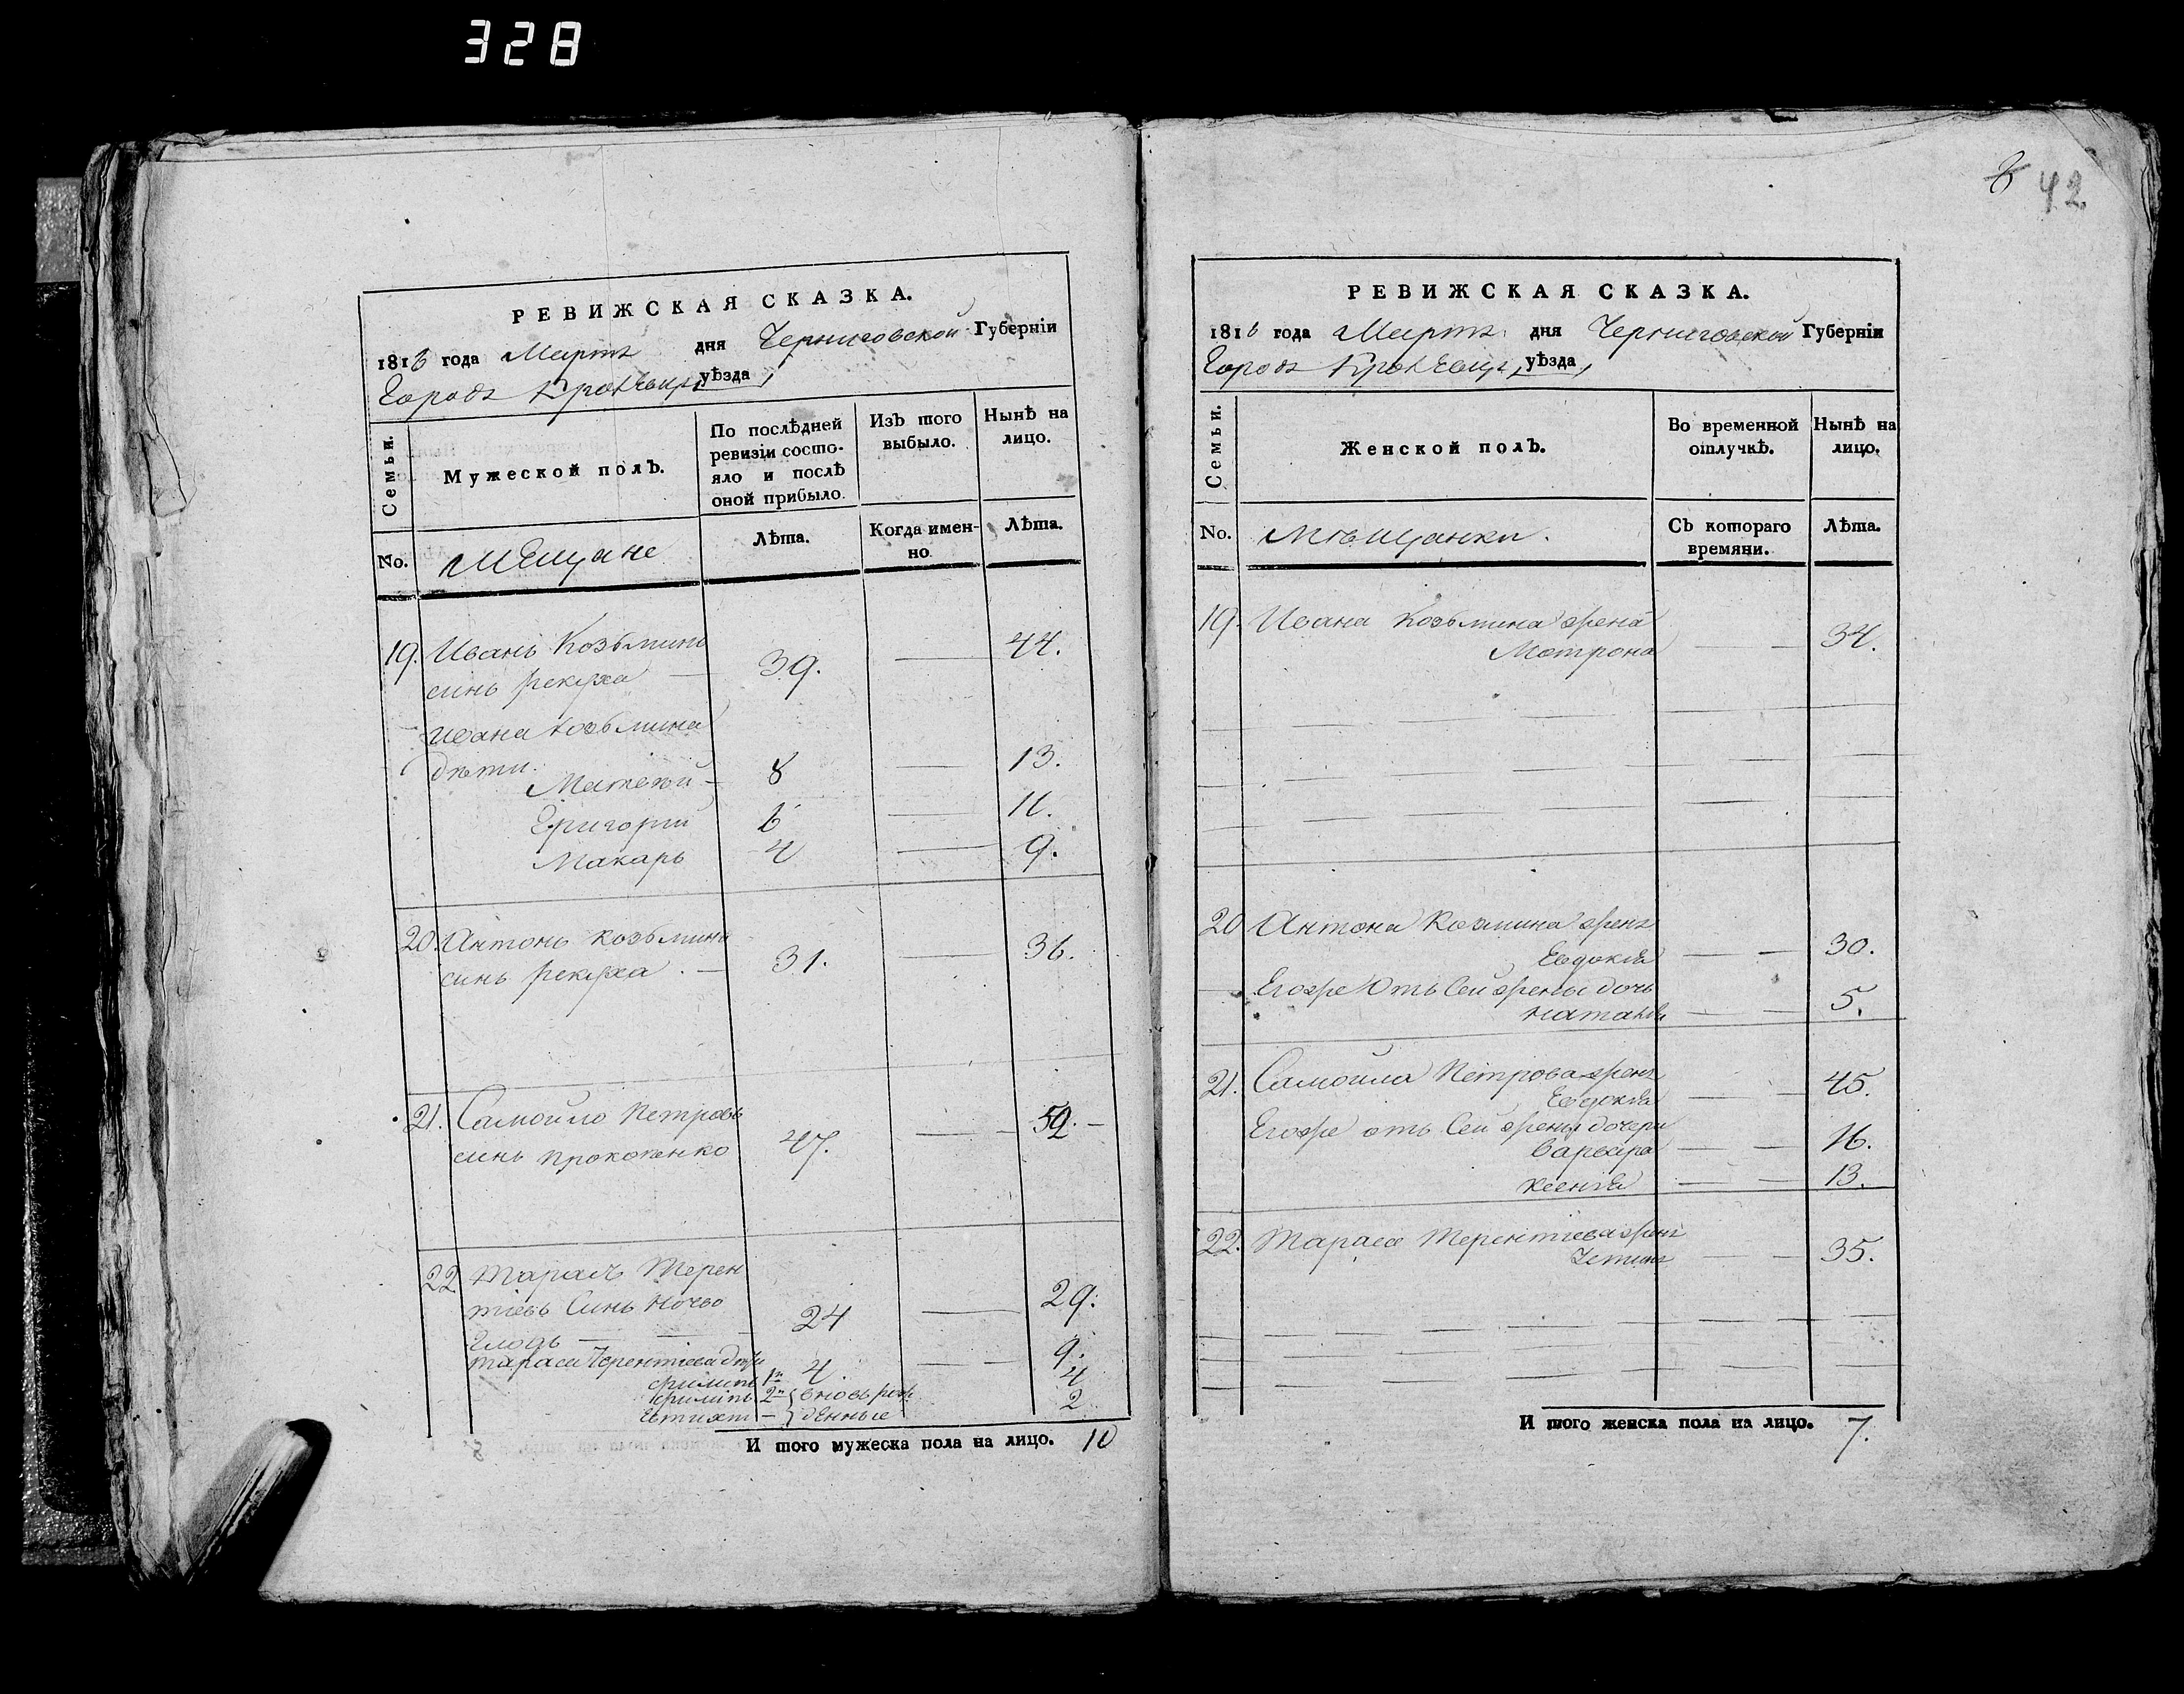 328
8 42
РЕВИЖСКАЯ СКАЗКА.
1816 года Мартъ дня Черниговской Губерніи
Городъ Кролевец, уѣзда,
Семьи.
Мужеской полъ.
По послѣдней ревизіи состо-
яло и послѣ
оной прибыло.
Изъ того
выбыло.
Нынѣ на
лицо.
No.
Мещане
Лѣта.
Когда имен-
но
Лѣта.
19. Иванъ Козьминъ
синъ рекуха — 39. — 44.
Ивана Козьмина
дѣти.
Матвей — 8 — 13.
Григорий 6 — 11.
Макаръ 4 — 9.
20. Антонъ Козьминъ
синъ рекуха. — 31. — 36.
21. Самойло Петровъ
синъ Прокопенко 47. — 52. —
22 Тарасъ Терен
тіевъ Синъ Ночво 24 — 29.
Глодъ — —
Тараса Терентіева дѣти
Филипъ 1й 4. — 9.
Филипъ 2й вновь рож 4
Евтихи — денные 2
И того мужеска пола на лицо. 10
РЕВИЖСКАЯ СКАЗКА.
1816 года Мартъ дня Черниговской Губерніи
Городъ Кролевец, уѣзда,
Семьи.
Женской полъ.
Во временной
отлучкѣ.
Нынѣ на
лицо.
No.
Мѣщанки.
Съ котораго
времяни.
Лѣта.
19. Ивана Козьмина жена
Мотрона — — 34.
20 Антона Козмина жена
Евдокія — — 30.
Егоже отъ Сей жены дочь
Наталія — — 5.
21. Самойла Петрова жена
Евдокія — — 45.
Егоже отъ Сей жены дочери
Варвара — — 16.
Ксенія — — 13.
22. Тараса Терентіева жена
— — 35.
И того женска пола на лицо. 7.